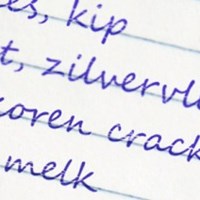 es, kip
t, zilvervl
koren crack
melk